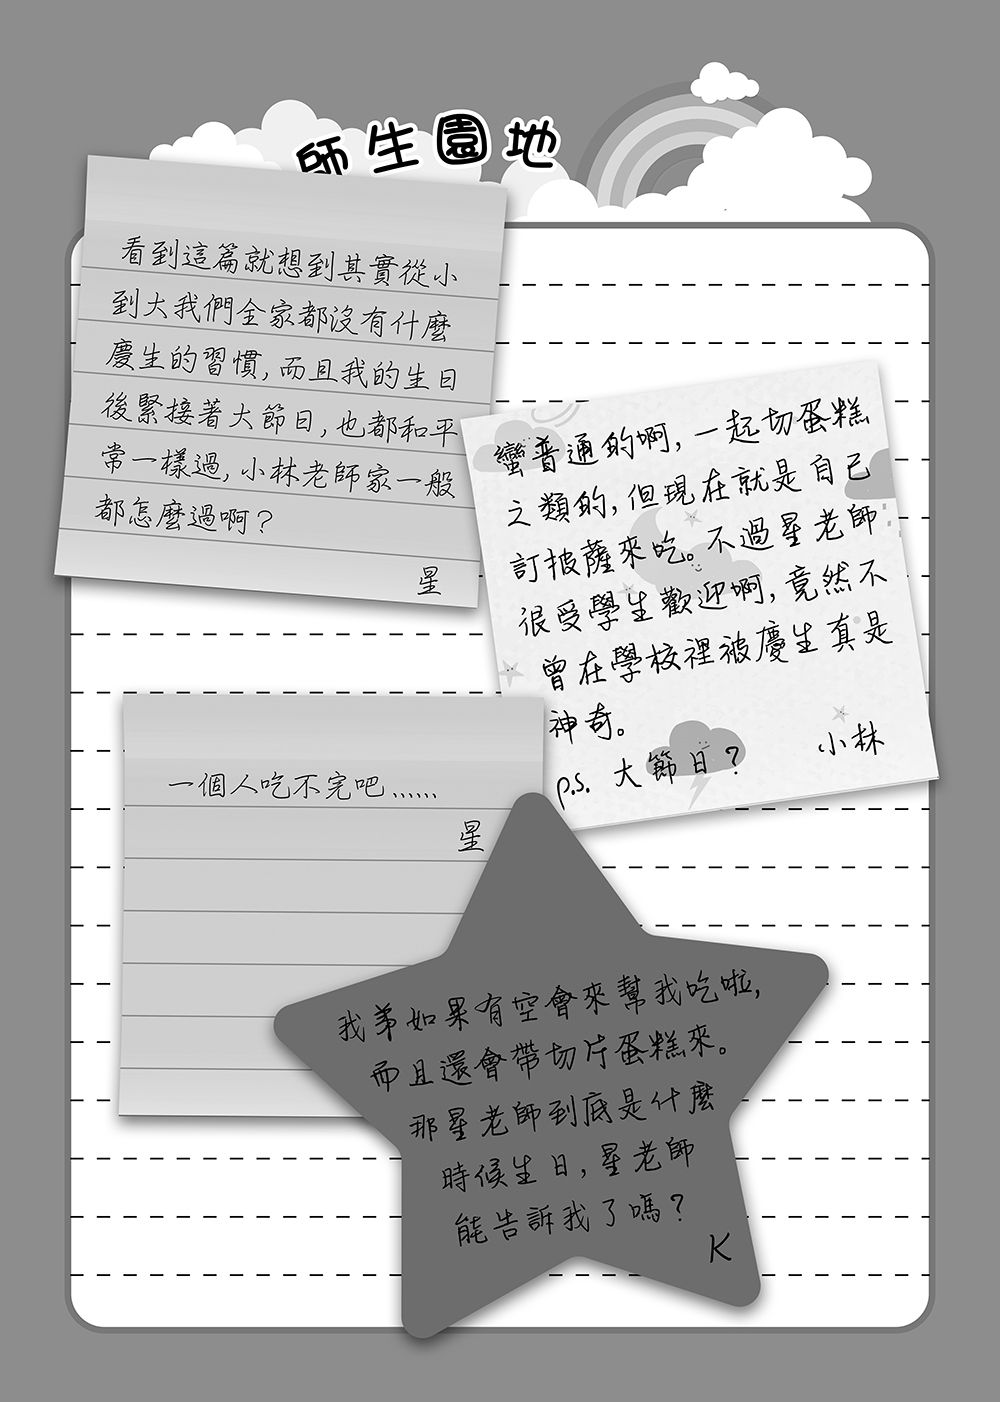 師生園地
看到這篇就想到其實從小
到大我們全家都沒有什麼
慶生的習慣,而且我的生日
後緊接著大節日,也都和平
常一樣過,小林老師家一般
都怎麼過啊?
星
蠻普通的啊,一起切蛋糕
之類的,但現在就是自己
訂披薩來吃。不過星老師
很受學生歡迎啊,竟然不
曾在學校裡被慶生真是
神奇。
小林
p.s. 大節日?
一個人吃不完吧......
星
我弟如果有空會來幫我吃啦,
而且還會帶切片蛋糕來。
那星老師到底是什麼
時候生日,星老師
能告訴我了嗎?
K